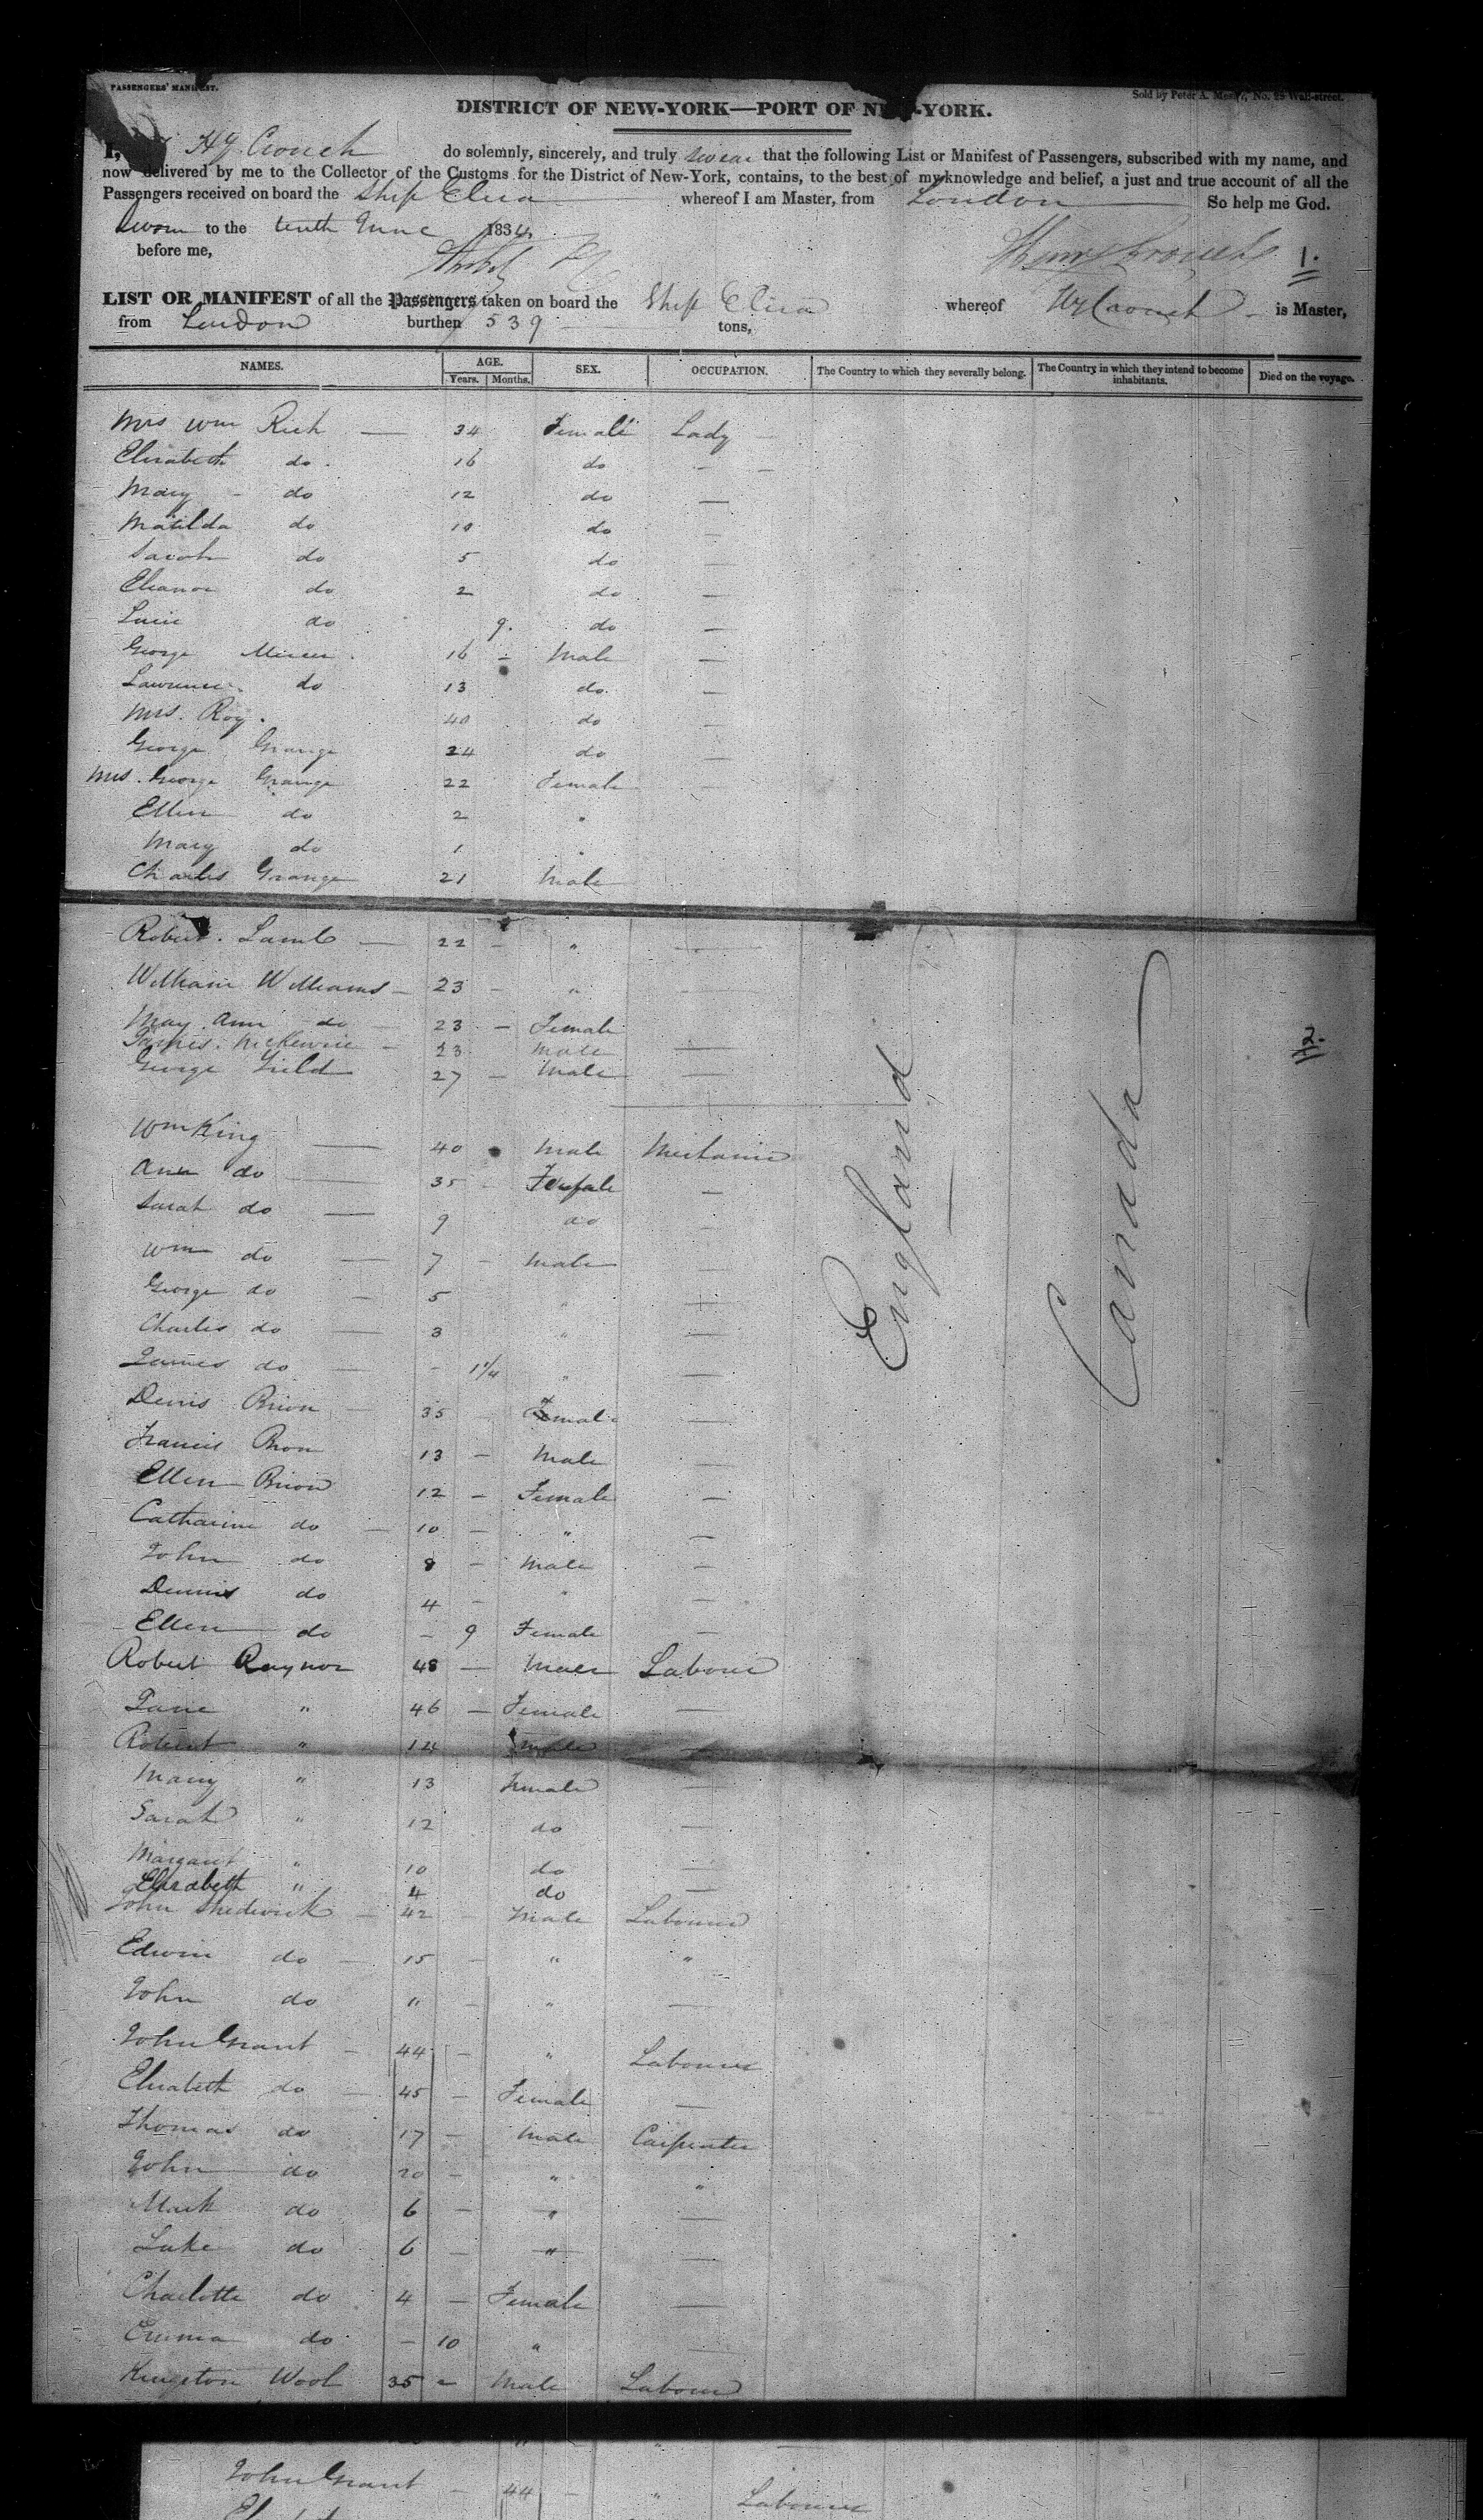 PASSENGERS' MANIFEST.
Sold by Peter A. Mesier, No. 28 Wall-street.
DISTRICT OF NEW-YORK—PORT OF NEW-YORK.
I, H J Crouch do solemnly, sincerely, and truly swear that the following List or Manifest of Passengers, subscribed with my name, and
now delivered by me to the Collector of the Customs for the District of New-York, contains, to the best of my knowledge and belief, a just and true account of all the
Passengers received on board the Ship Eliza whereof I am Master, from London So help me God.
Sworn to the tenth June 1834
before me,
Henry Crouch 1.
LIST OR MANIFEST of all the Passengers taken on board the Ship Eliza whereof Hy Crouch is Master,
from London burthen 539 tons,
NAMES. AGE. SEX. OCCUPATION. The Country to which they severally belong. The Country in which they intend to become inhabitants. Died on the voyage.
Years. Months.
Mrs Wm Rich — 34 Female Lady
Elizabeth do 16 do —
Mary do 12 do —
Matilda do 10 do —
Sarah do 5 do —
Eleanor do 2 do —
do 9. do —
George 16 - Male —
Lawrence do 13 do. —
Mrs. Roy. 40 do —
George Grange 24 do —
Mrs. George Grange 22 Female —
Ellen do 2 "
Mary do 1 "
Charles Grange 21 Male
Robert. Lamb — 22 — " —
William Williams — 23 — " —
May Ann do 23 — Female
James. McKenzie — 23 Male —
George Field 27 — Male —
England
Canada
2.
Wm King — 40 Male Mechanic
Ann do — 35 - Female —
Sarah do — 9 do
Wm do — 7 - Male —
George do — 5 " —
Charles do — 3 " —
James do — - 1 1/4 " —
Denis Brion — 35 Female —
Francis Brion 13 — Male —
Ellen Brion 12 — Female —
Catharine do — 10 — " —
John do 8 — Male —
Dennis do 4 — " —
Ellen do — 9 Female —
Robert Raynor 48 — Male Labour
Jane " 46 — Female —
Robert " 14 Male —
Mary " 13 Female —
Sarah " 12 do —
Margaret " 10 do —
Elizabeth " 4 do —
John Shedwick — 42 - Male Labourer
Edwin do — 15 — " "
John do " — " —
John Grant — 44 — " Labourer
Elizabeth do — 45 — Female —
Thomas do 17 — Male Carpenter
John do 20 — " "
Mark do 6 — " —
Luke do 6 — " —
Charlotte do 4 — Female —
Emma do — 10 " —
Kingston Wool 35 - Male Labour
John Grant — 44 — " Labourer